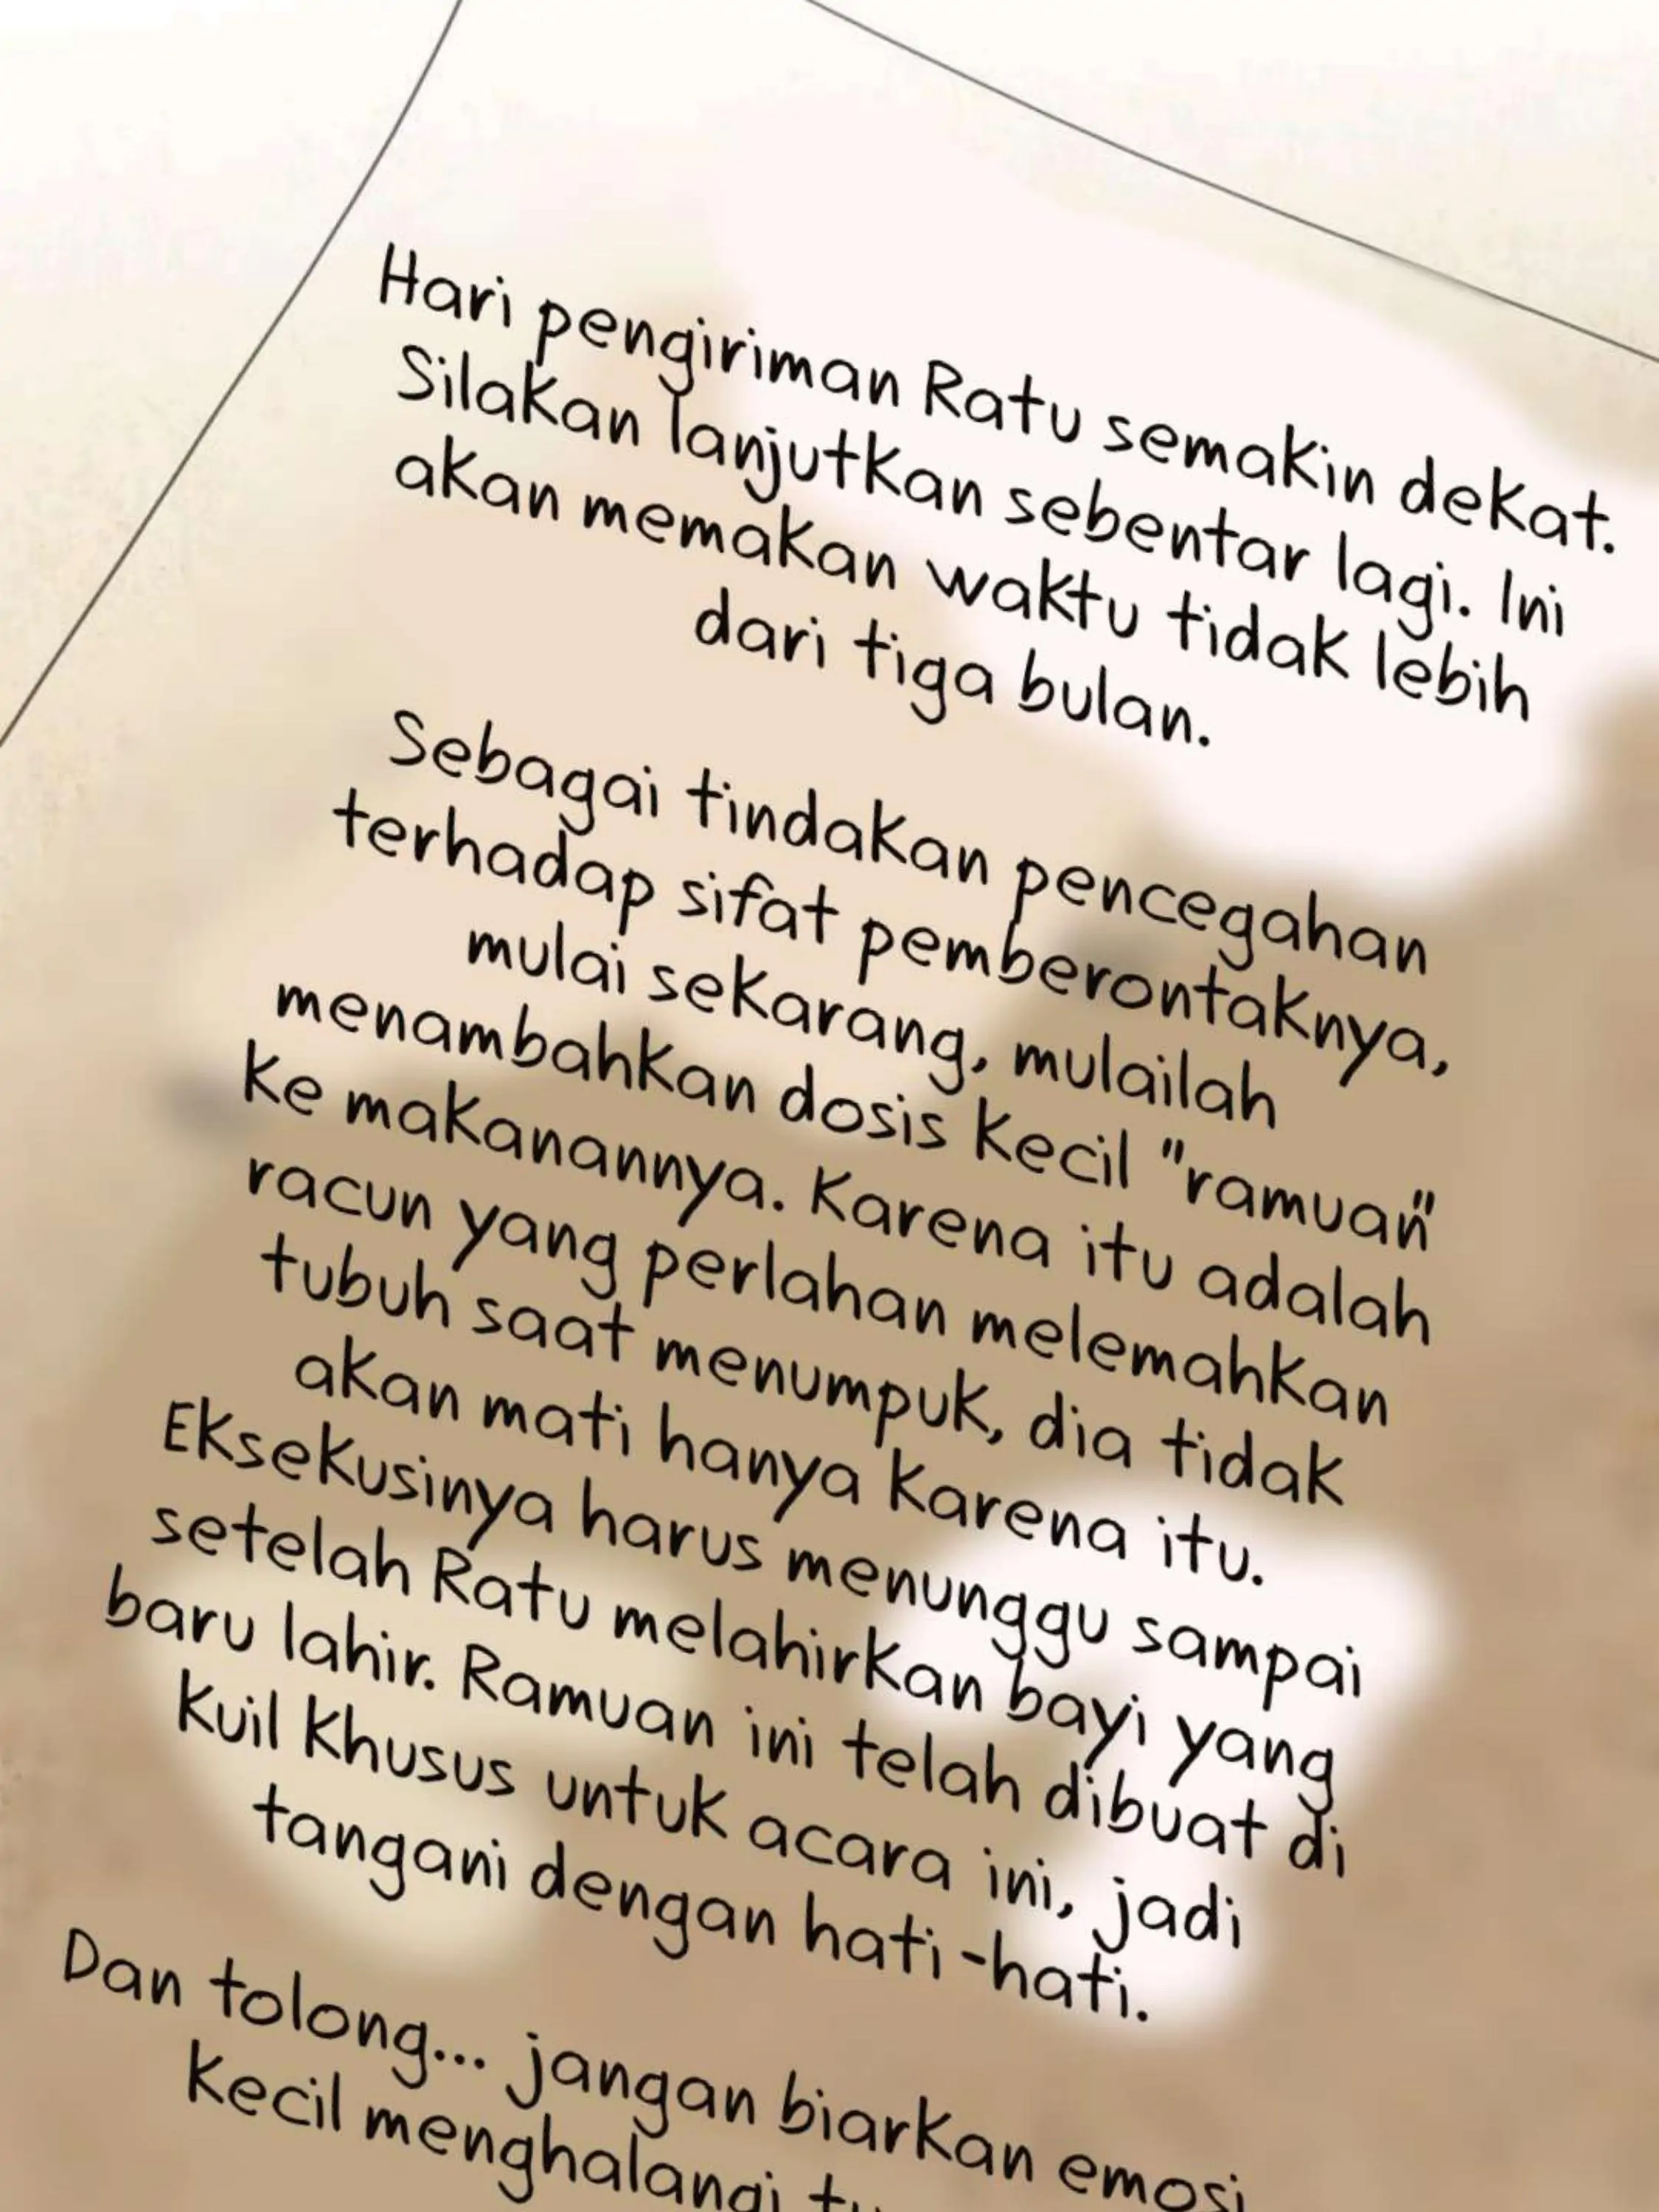 Hari pengiriman Ratu semakin dekat.
Silakan lanjutkan sebentar lagi. Ini
akan memakan waktu tidak lebih
dari tiga bulan.
Sebagai tindakan pencegahan
terhadap sifat pemberontaknya,
mulai sekarang, mulailah
menambahkan dosis kecil "ramuan"
ke makanannya. Karena itu adalah
racun yang perlahan melemahkan
tubuh saat menumpuk, dia tidak
akan mati hanya karena itu.
Eksekusinya harus menunggu sampai
setelah Ratu melahirkan bayi yang
baru lahir. Ramuan ini telah dibuat di
kuil khusus untuk acara ini, jadi
tangani dengan hati-hati.
Dan tolong... jangan biarkan emosi
kecil menghalangi